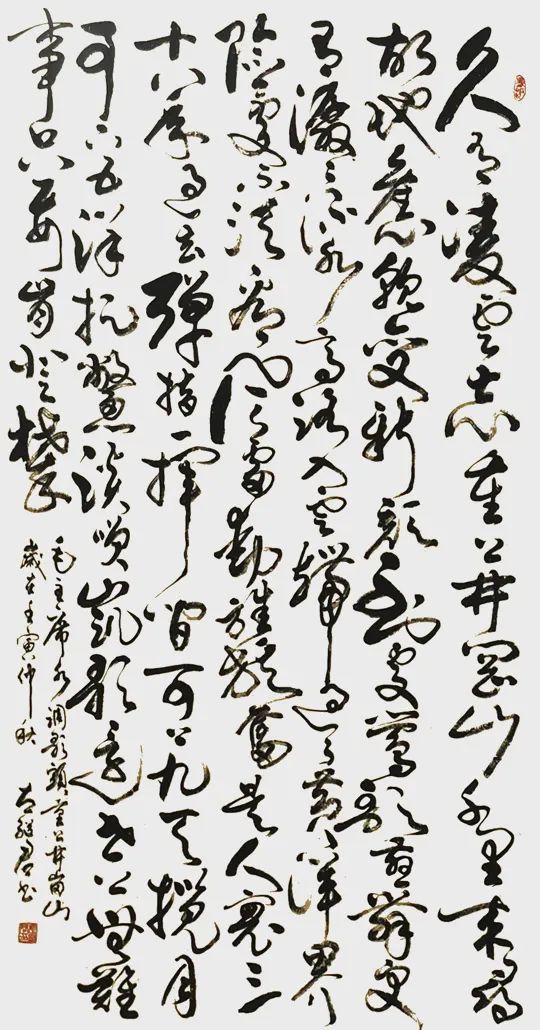 久有凌云志重上井冈山千里来寻
故地舊貌变新颜到处莺歌燕舞更
有潺潺流水高路入云端过了黄洋界
险处不须看风雷动旌旗奋是人寰三
十八年过去弹指一挥间可上九天揽月
可下五洋捉鳖谈笑凯歌还世上無難
事只要肯登攀
毛主席水调歌头重上井岗山
岁在壬寅仲秋
书